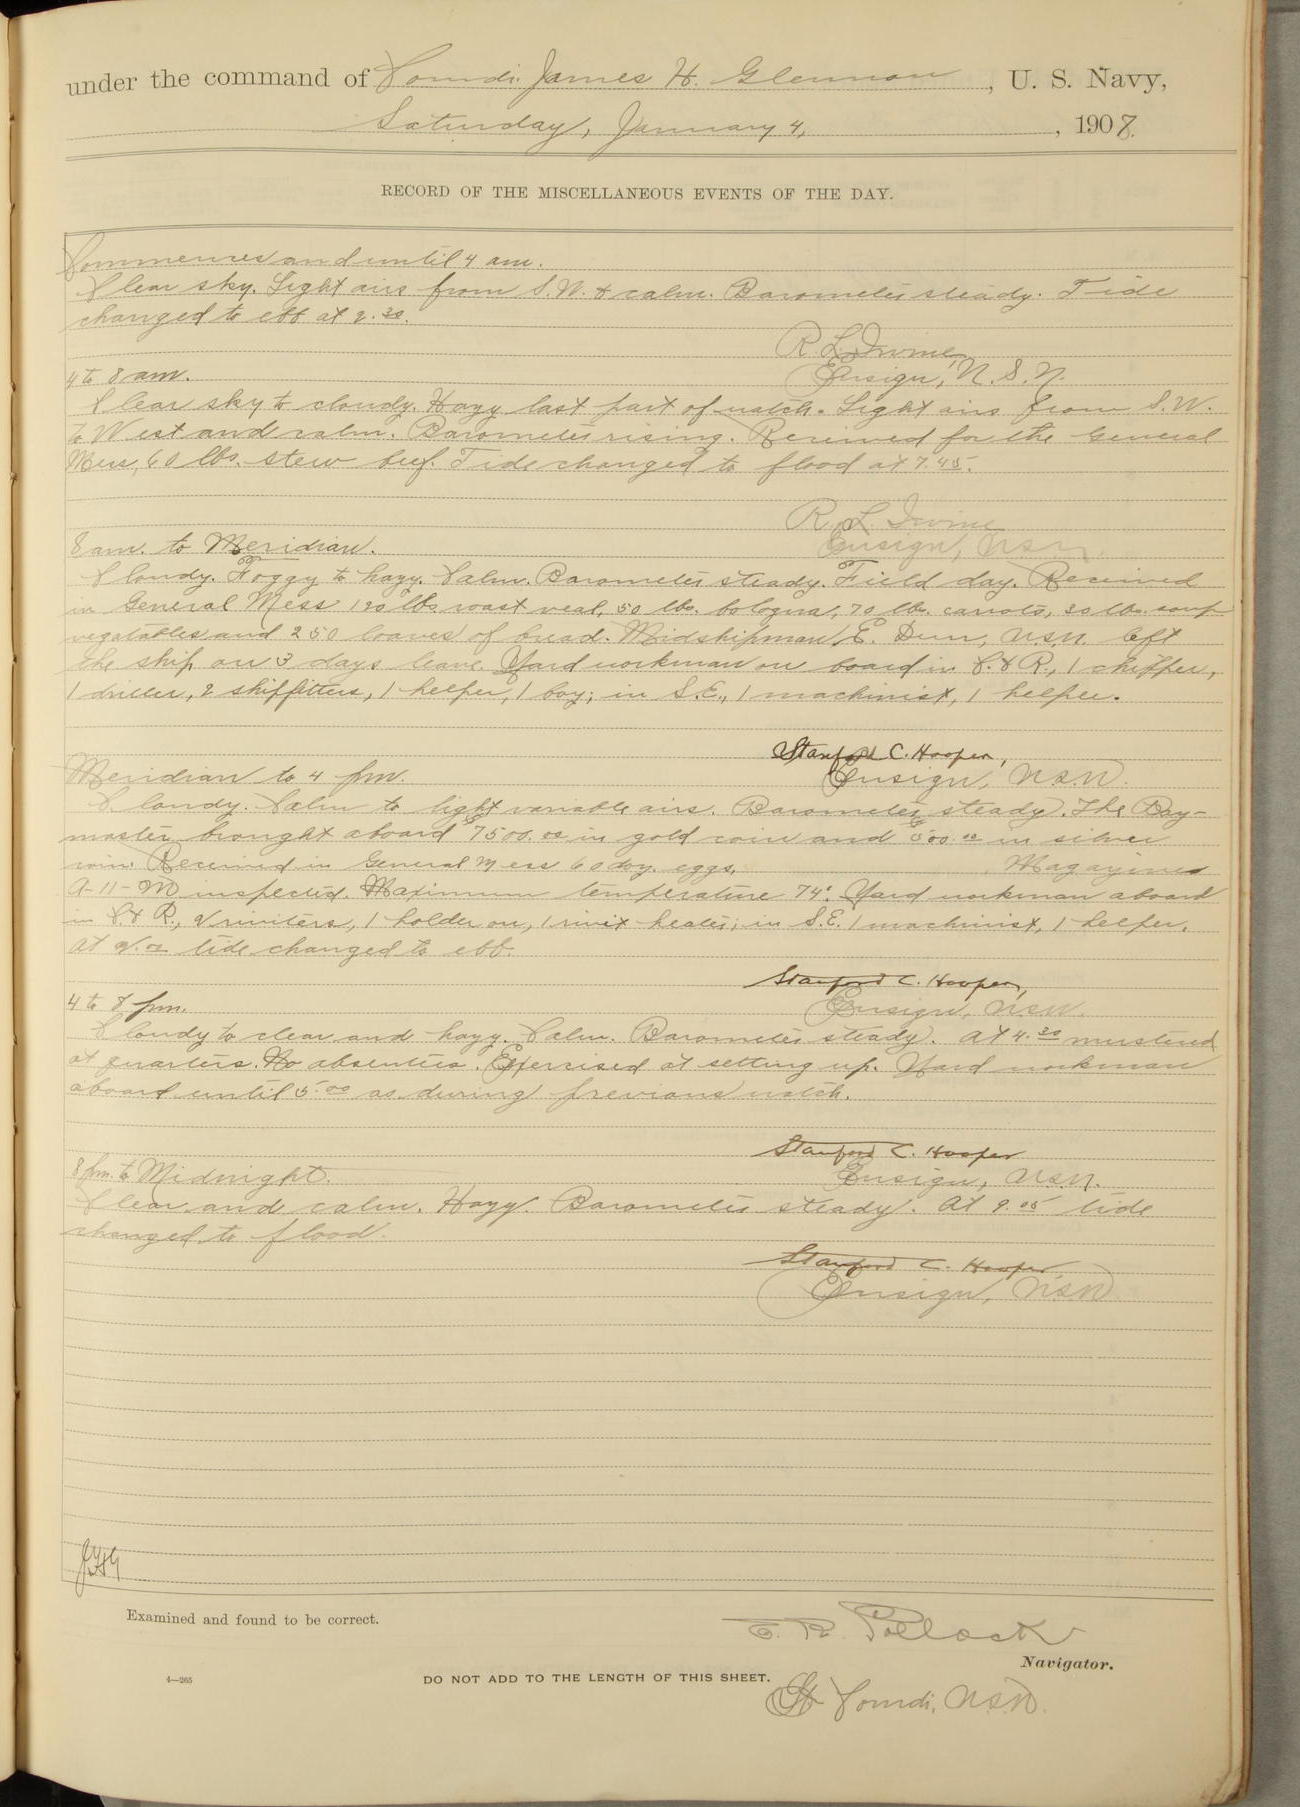 under the command of Comdr. James H. Glennon, U. S. Navy,
Saturday, January 4, 1908.
RECORD OF THE MISCELLANEOUS EVENTS OF THE DAY.
Commences and until 4 am.
Clear sky. Light airs from S.W. & calm. Barometer steady. Tide
changed to ebb at 2.30.
R. L. Irvine,
Ensign, U.S.N.
4 to 8 am.
Clear sky to cloudy. Hazy last part of watch. Light airs from S.W.
to West and calm. Barometer rising. Received for the General
Mess, 60 lbs. stew beef. Tide changed to flood at 7.45.
R. L. Irvine
Ensign, U.S.N.
8 am. to Meridian.
Cloudy. Foggy to hazy. Calm. Barometer steady. Field day. Received
in General Mess 120 lbs roast veal, 50 lbs. bologna, 70 lbs. carrots, 30 lbs. soup
vegatables and 250 loaves of bread. Midshipman E. Durr, U.S.N. left
the ship on 3 days leave. Yard workman on board in C. & R., 1 chipper,
1 driller, 2 shipfitters, 1 helper, 1 boy; in S.E., 1 machinist, 1 helper.
Stanford C. Hooper,
Ensign, U.S.N.
Meridian to 4 pm.
Cloudy. Calm to light variable airs. Barometer steady. The Pay-
master brought aboard $7500.00 in gold coin and $500.00 in silver
coin. Received in General Mess 60 doz. eggs. Magazines
A-11-M inspected. Maximum temperature 74°. Yard workman aboard
in C. & R., 2 riviters, 1 holder on, 1 rivit heater; in S.E. 1 machinist, 1 helper.
At 2.00 tide changed to ebb.
Stanford C. Hooper,
Ensign, U.S.N.
4 to 8 pm.
Cloudy to clear and hazy. Calm. Barometer steady. At 4.30 mustered
at quarters. No absentees. Exercised at setting up. Yard workman
aboard until 5.00 as during previous watch.
Stanford C. Hooper
Ensign, U.S.N.
8 pm. to Midnight.
Clear and calm. Hazy. Barometer steady. At 9.05 tide
changed to flood.
Stanford C. Hooper
Ensign, U.S.N.
JHG
Examined and found to be correct.
E. R. Pollock
Navigator.
4—265
DO NOT ADD TO THE LENGTH OF THIS SHEET.
Lt. Comdr., U.S.N.